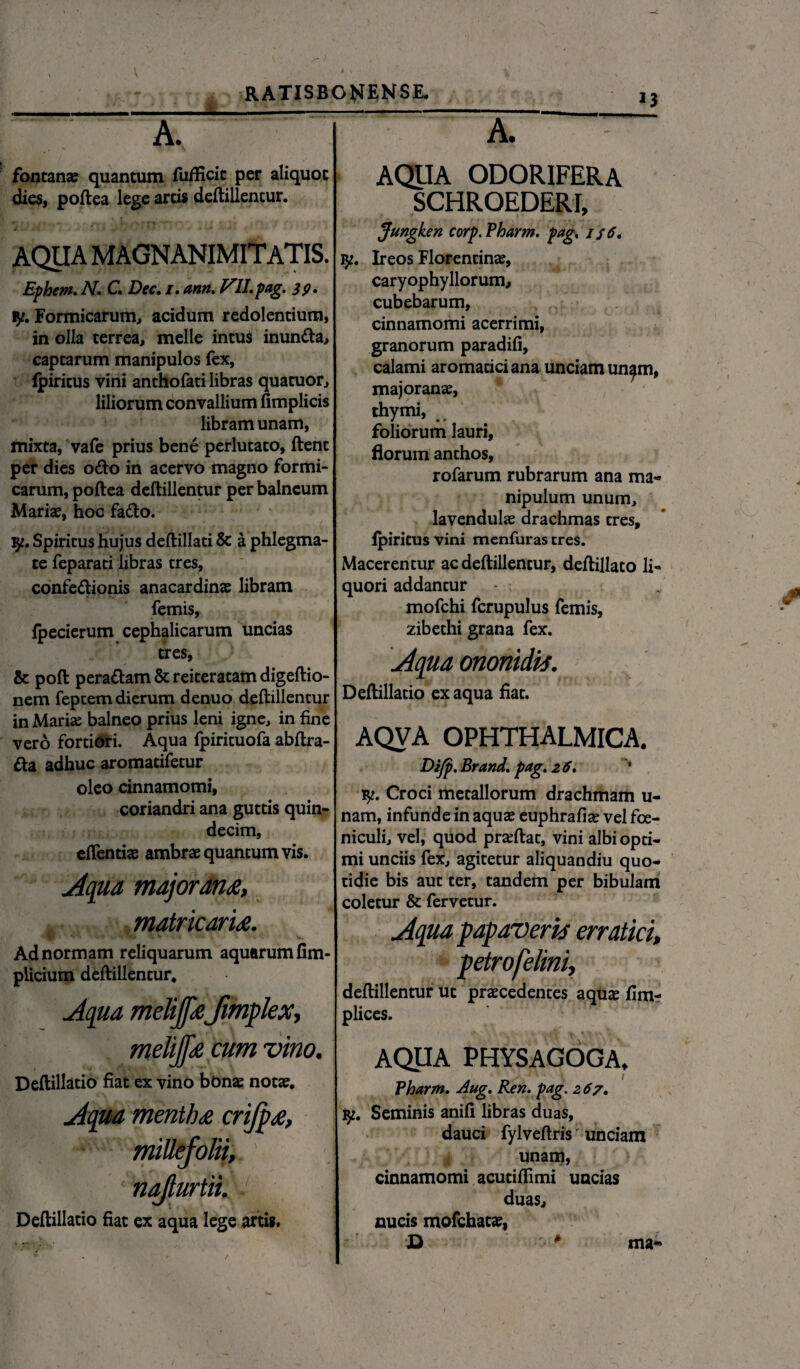 RATISBONENSE.
13
A.
fontanæ quantum ſufficit per aliquot
dies, poſtea lege artis deſtillentur.
AQUA MAGNANIMITATIS.
Ephem. N. C. Dec. 1. ann. VII. pag. 39.
℞. Formicarum, acidum redolentium,
in olla terrea, melle intus inuncta,
captarum manipulos ſex,
ſpiritus vini anthoſati libras quatuor,
liliorum convallium ſimplicis
libram unam,
mixta, vaſe prius bené perlutato, ſtent
per dies octo in acervo magno formi-
carum, poſtea deſtillentur per balneum
Mariæ, hoc facto.
℞. Spiritus hujus deſtillati & à phlegma-
te ſeparati libras tres,
confectionis anacardinæ libram
ſemis,
ſpecierum cephalicarum uncias
tres,
& poſt peractam & reiteratam digeſtio-
nem ſeptem dierum denuo deſtillentur
in Mariæ balneo prius leni igne, in fine
verò fortiori. Aqua ſpirituoſa abſtra-
cta adhuc aromatiſetur
oleo cinnamomi,
coriandri ana guttis quin-
decim,
eſſentiæ ambræ quantum vis.
Aqua majoranæ,
matricariæ.
Ad normam reliquarum aquarum ſim-
plicium deſtillentur.
Aqua meliſſæ ſimplex,
meliſſæ cum vino.
Deſtillatio fiat ex vino bonæ notæ.
Aqua menthæ criſpæ,
millefolii,
naſturtii.
Deſtillatio fiat ex aqua lege artis.
A.
AQUA ODORIFERA
SCHROEDERI,
Jungken corp. Pharm. pag. 156.
℞. Ireos Florentinæ,
caryophyllorum,
cubebarum,
cinnamomi acerrimi,
granorum paradiſi,
calami aromatici ana unciam unam,
majoranæ,
thymi,
foliorum lauri,
florum anthos,
roſarum rubrarum ana ma-
nipulum unum,
lavendulæ drachmas tres,
ſpiritus vini menſuras tres.
Macerentur ac deſtillentur, deſtillato li-
quori addantur
moſchi ſcrupulus ſemis,
zibethi grana ſex.
Aqua ononidis.
Deſtillatio ex aqua fiat.
AQVA OPHTHALMICA.
Diſp. Brand. pag. 26.
℞. Croci metallorum drachmam u-
nam, infunde in aquæ euphraſiæ vel fœ-
niculi, vel, quod præſtat, vini albi opti-
mi unciis ſex, agitetur aliquandiu quo-
tidie bis aut ter, tandem per bibulam
coletur & ſervetur.
Aqua papaveris erratici,
petroſelini,
deſtillentur ut præcedentes aquæ ſim-
plices.
AQUA PHYSAGOGA.
Pharm. Aug. Ren. pag. 267.
℞. Seminis aniſi libras duas,
dauci ſylveſtris unciam
unam,
cinnamomi acutiſſimi uncias
duas,
nucis moſchatæ,
D
ma-